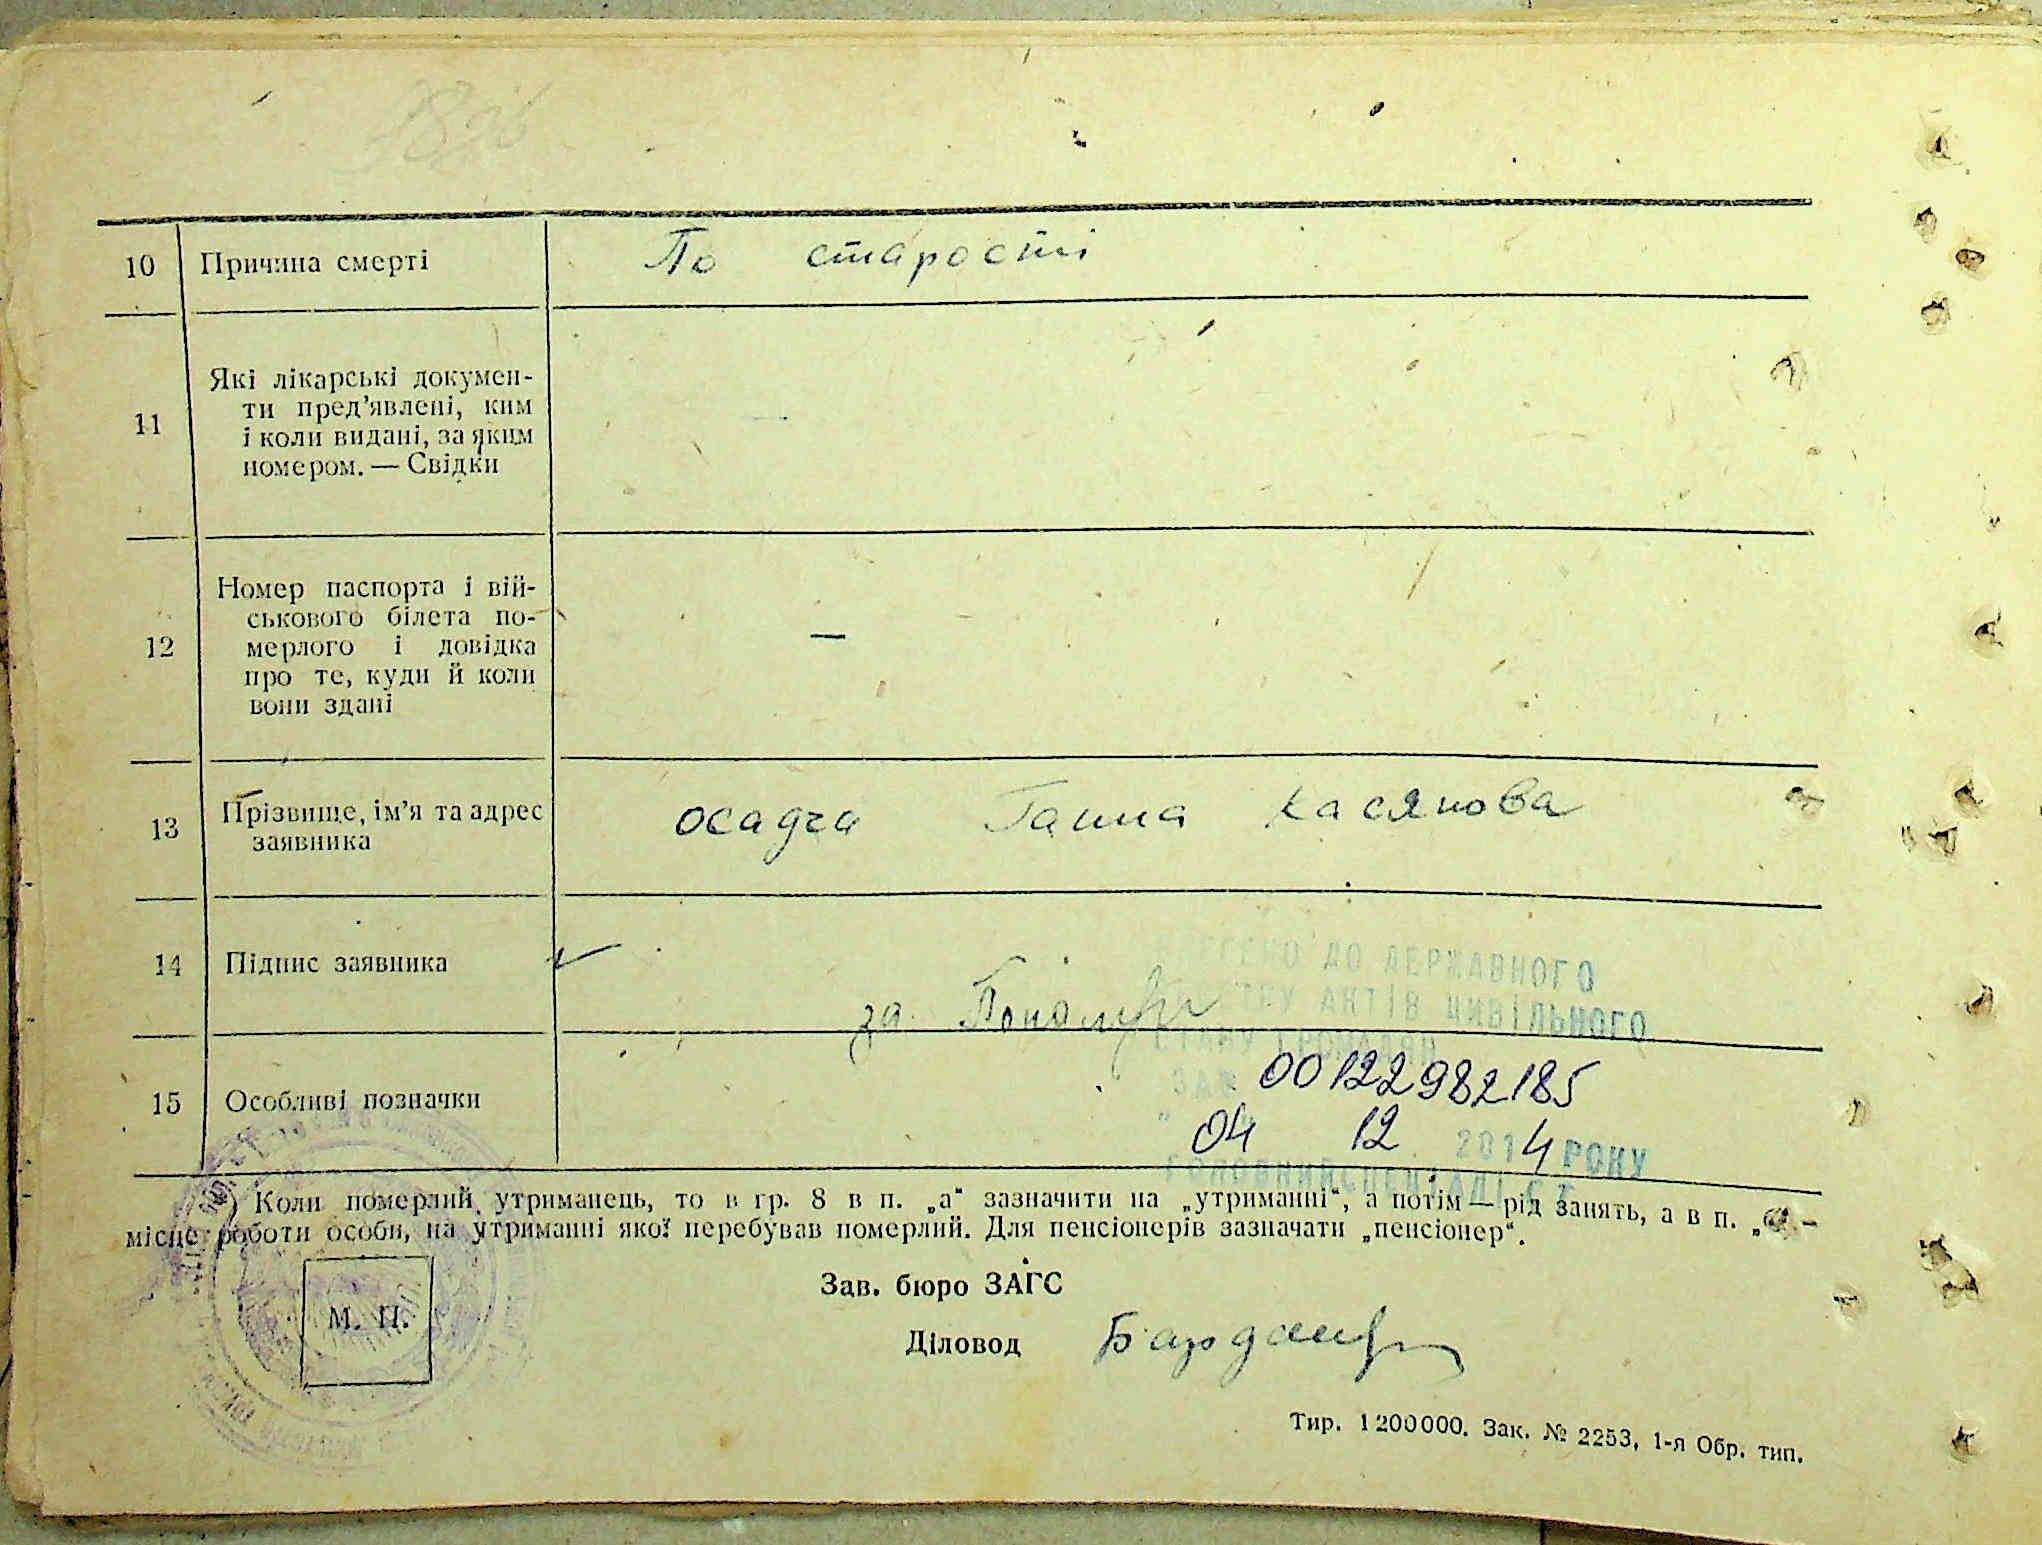 10 Причина смерті По старості
11 Які лікарські докумен-
ти пред'явлені, ким
і коли видані, за яким
номером. — Свідки
12 Номер паспорта і вій-
ськового білета по-
мерлого і довідка
про те, куди й коли
вони здані —
13 Прізвище, ім'я та адрес
заявника осадча Ганна Касянова
14 Підпис заявника за
ДО ДЕРЖАВНОГО
АКТІВ ЦИВІЛЬНОГО
СТАНУ ГРОМАДЯН
ЗА № 00122982185
15 Особливі позначки
04 12 2014 РОКУ
ГОЛОВНИЙ СПЕЦІАЛІСТ
*) Коли померлий утриманець, то в гр. 8 в п. „а“ зазначити на „утриманні“, а потім — рід занять, а в п. „б“ —
місце роботи особи, на утриманні якої перебував померлий. Для пенсіонерів зазначати „пенсіонер“.
М. П.
Зав. бюро ЗАГС
Діловод
Тир. 1200000. Зак. № 2253, 1-я Обр. тип.